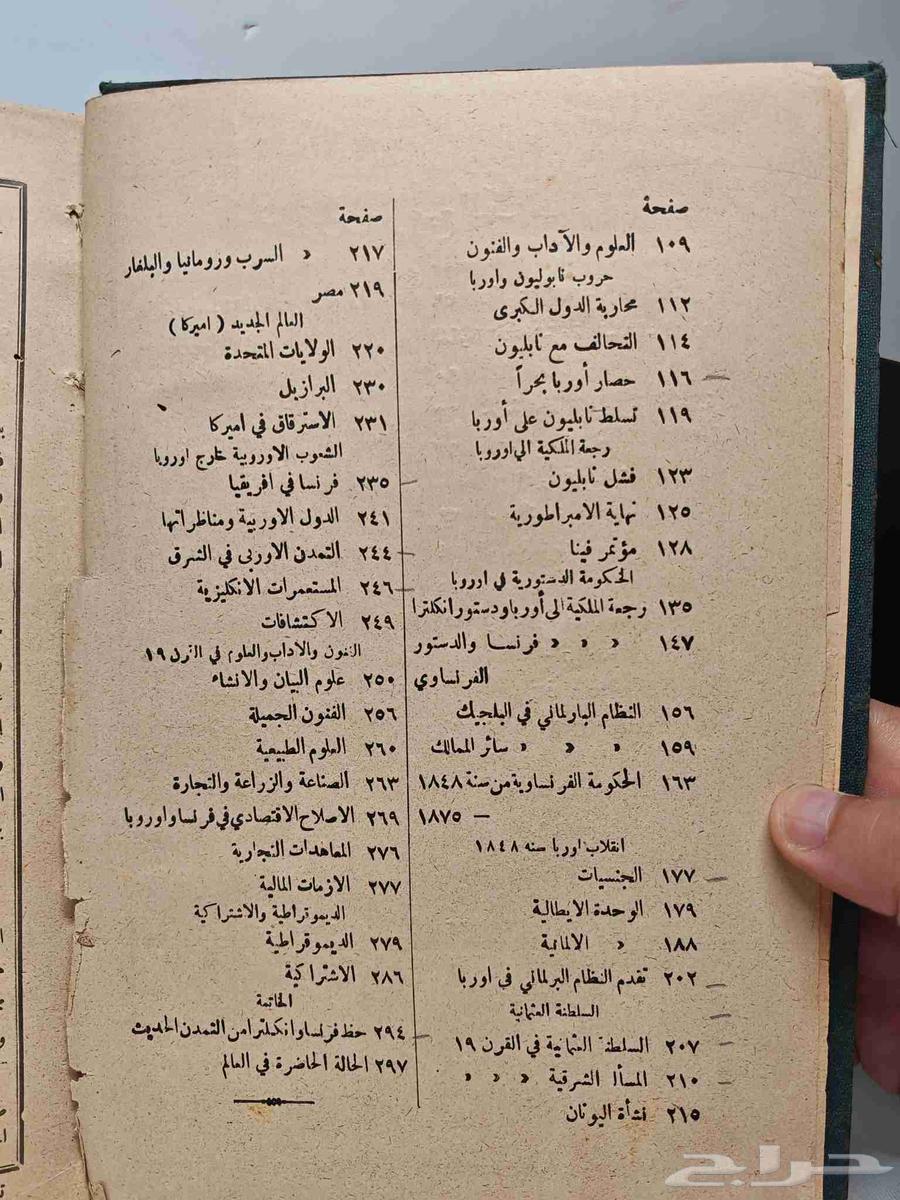 صفحة
١٠٩ العلوم والآداب والفنون
حروب نابوليون واوربا
١١٢ محاربة الدول الكبرى
١١٤ التحالف مع نابليون
١١٦ حصار أوربا بحراً
١١٩ تسلط نابليون على أوربا
رجعة الملكية الى اوروبا
١٢٣ فشل نابليون
١٢٥ نهاية الامبراطورية
١٢٨ مؤتمر فينا
الحكومة الدستورية في اوروبا
١٣٥ رجعة الملكية الى أوربا ودستور انكلترا
١٤٧ » » » فرنسا والدستور
الفرنساوي
١٥٦ النظام البارلماني في البلجيك
١٥٩ » » » سائر الممالك
١٦٣ الحكومة الفرنساوية من سنة ١٨٤٨
— ١٨٧٥
انقلاب اوربا سنه ١٨٤٨
١٧٧ الجنسيات
١٧٩ الوحدة الايطالية
١٨٨ » الالمانية
٢٠٢ تقدم النظام البرلماني في اوربا
السلطنة العثمانية
٢٠٧ السلطنة العثمانية في القرن ١٩
٢١٠ المسألة الشرقية » » »
٢١٥ نشأة اليونان
صفحة
٢١٧ » السرب ورومانيا والبلغار
٢١٩ مصر
العالم الجديد ( اميركا )
٢٢٠ الولايات المتحدة
٢٣٠ البرازيل
٢٣١ الاسترقاق في اميركا
الشعوب الاوروبية خارج اوروبا
٢٣٥ فرنسا في افريقيا
٢٤١ الدول الاوربية ومناظراتها
٢٤٤ التمدن الاوربى في الشرق
٢٤٦ المستعمرات الانكليزية
٢٤٩ الاكتشافات
الفنون والاداب والعلوم في القرن ١٩
٢٥٠ علوم البيان والانشاء
٢٥٦ الفنون الجميلة
٢٦٠ العلوم الطبيعية
٢٦٣ الصناعة والزراعة والتجارة
٢٦٩ الاصلاح الاقتصادي في فرنسا واوروبا
٢٧٦ المعاهدات التجارية
٢٧٧ الازمات المالية
الديموقراطية والاشتراكية
٢٧٩ الديموقراطية
٢٨٦ الاشتراكية
الخاتمة
٢٩٤ حظ فرنسا وانكلترا من التمدن الحديث
٢٩٧ الحالة الحاضرة في العالم
حراج